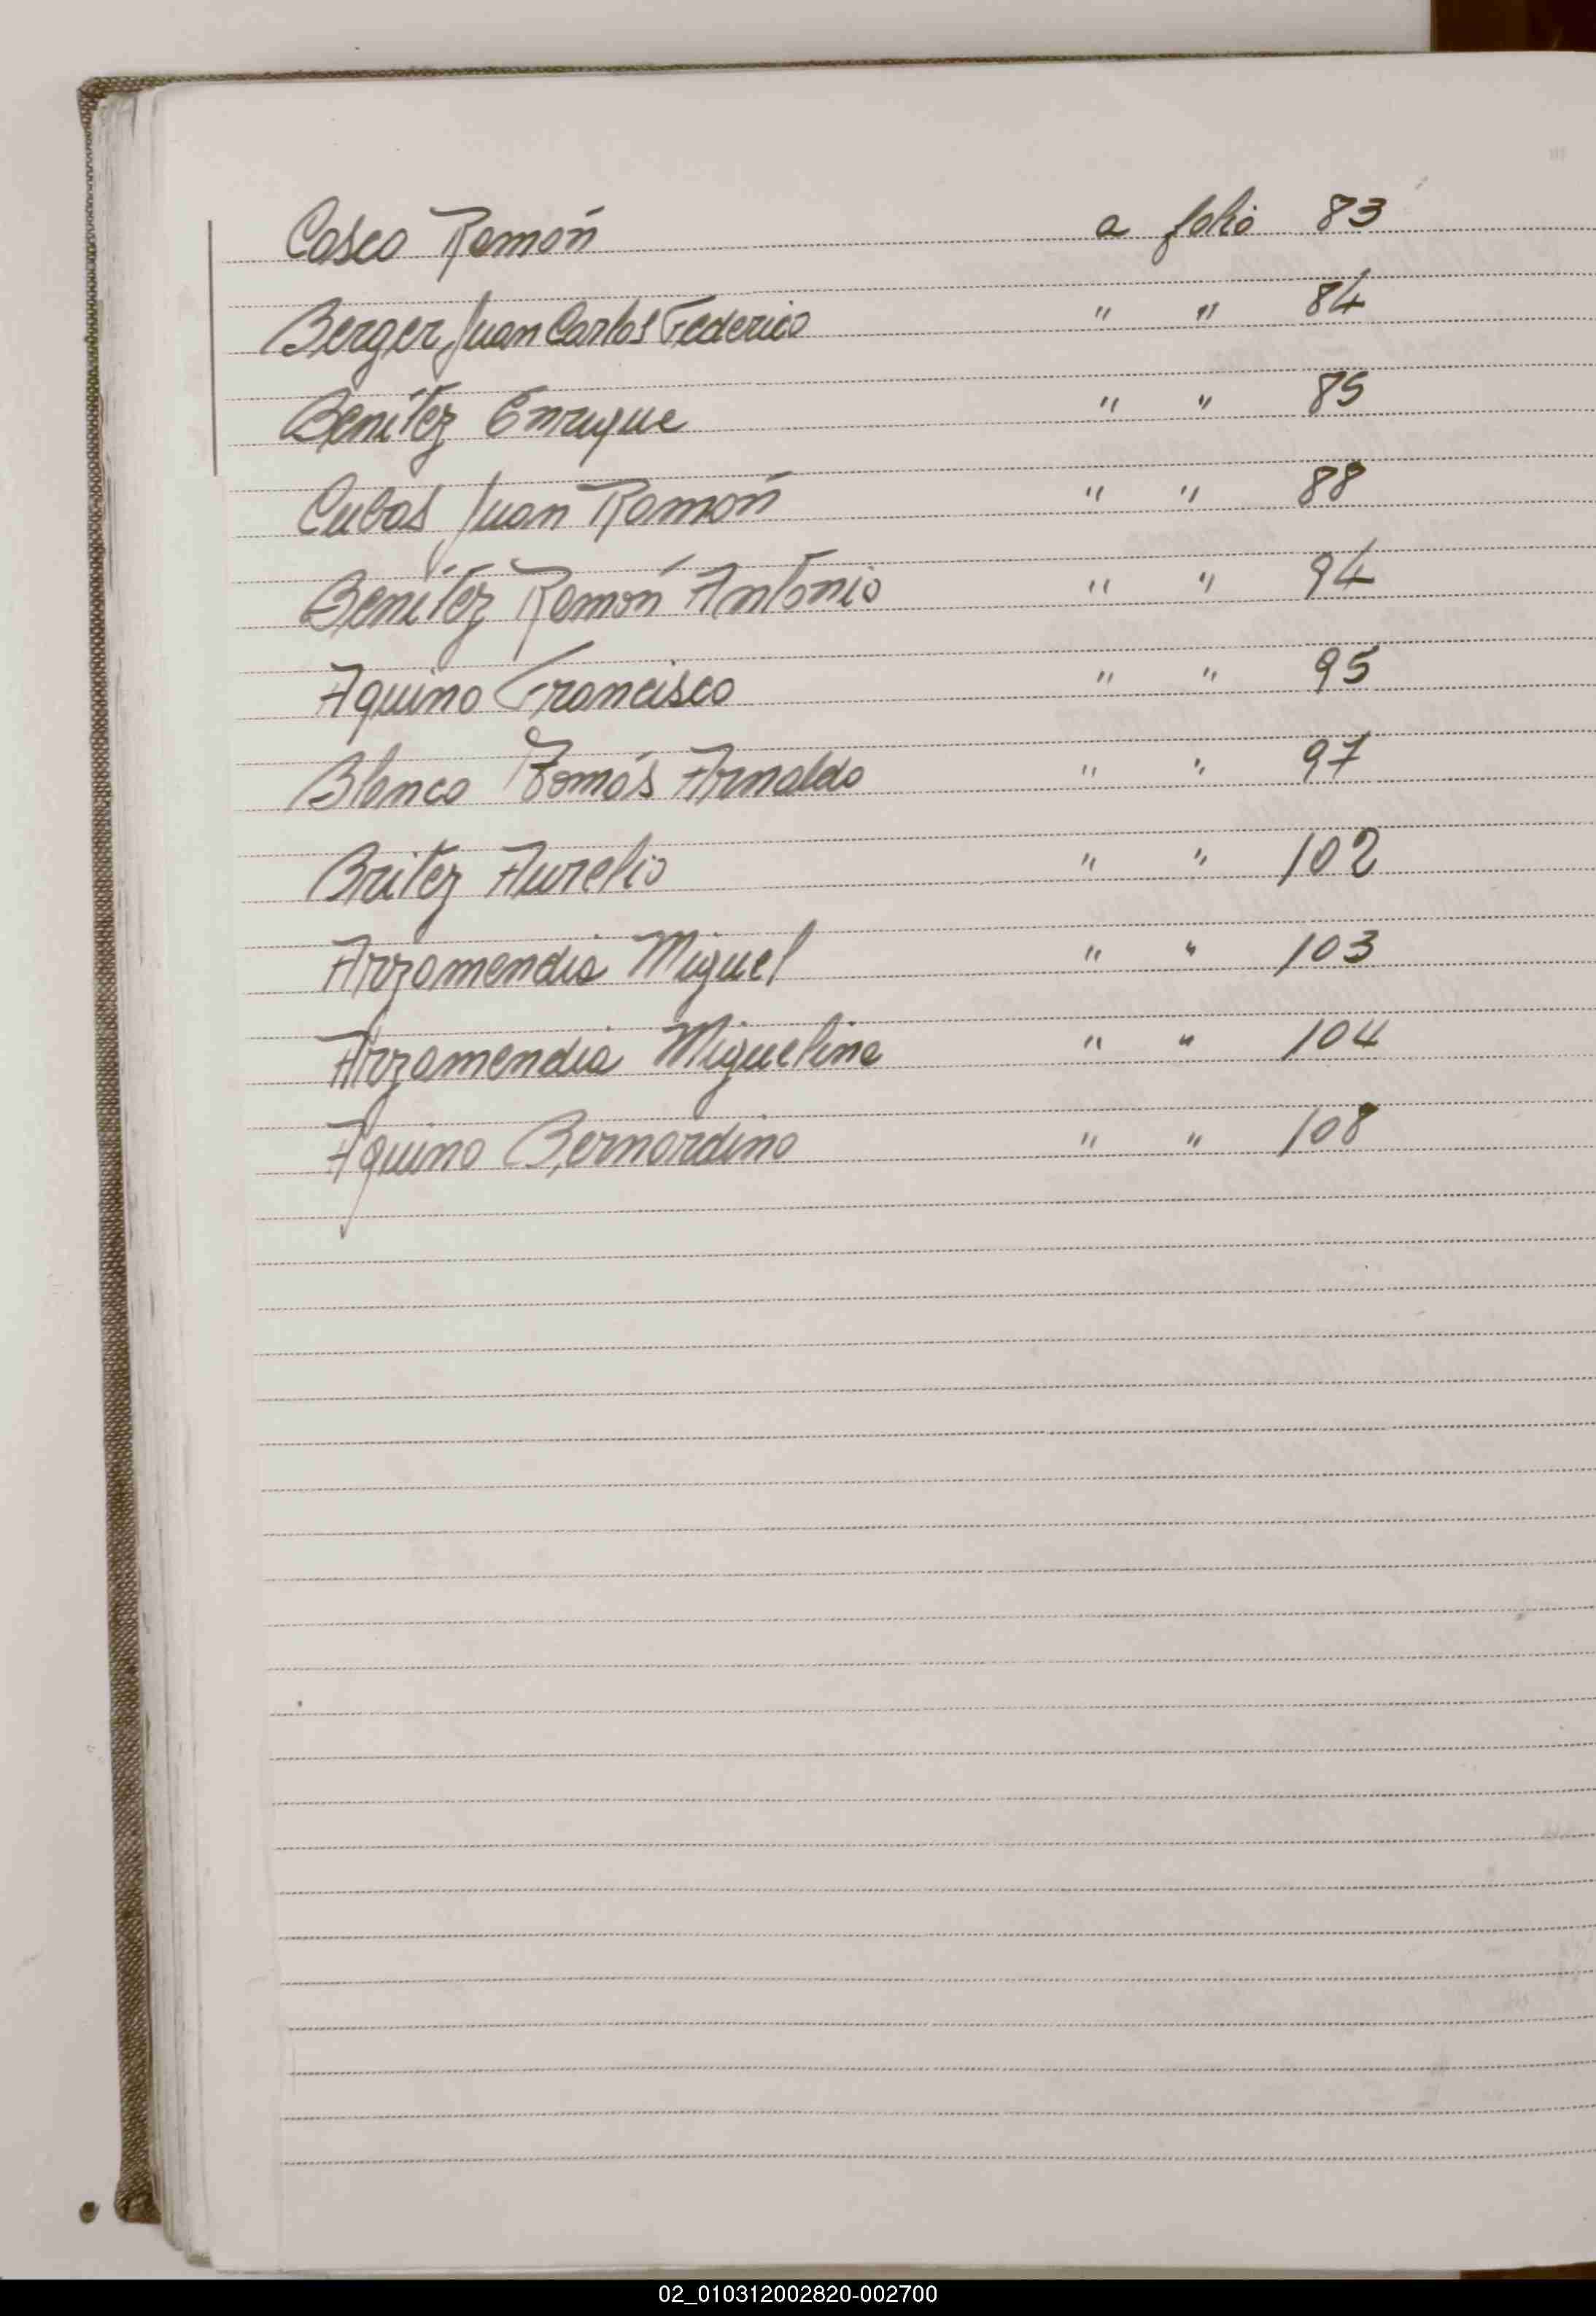 Cosco Ramón a folio 83
Berger Juan Carlos Federico " " 84
Benítez Enrique " " 85
Cubas Juan Ramón " " 88
Benítez Ramón Antonio " " 94
Aquino Francisco " " 95
Blanco Tomás Arnaldo " " 97
Britez Aurelio " " 102
Arzamendia Miguel " " 103
Arzamendia Miguelina " " 104
Aquino Bernardino " " 108
02_010312002820-002700